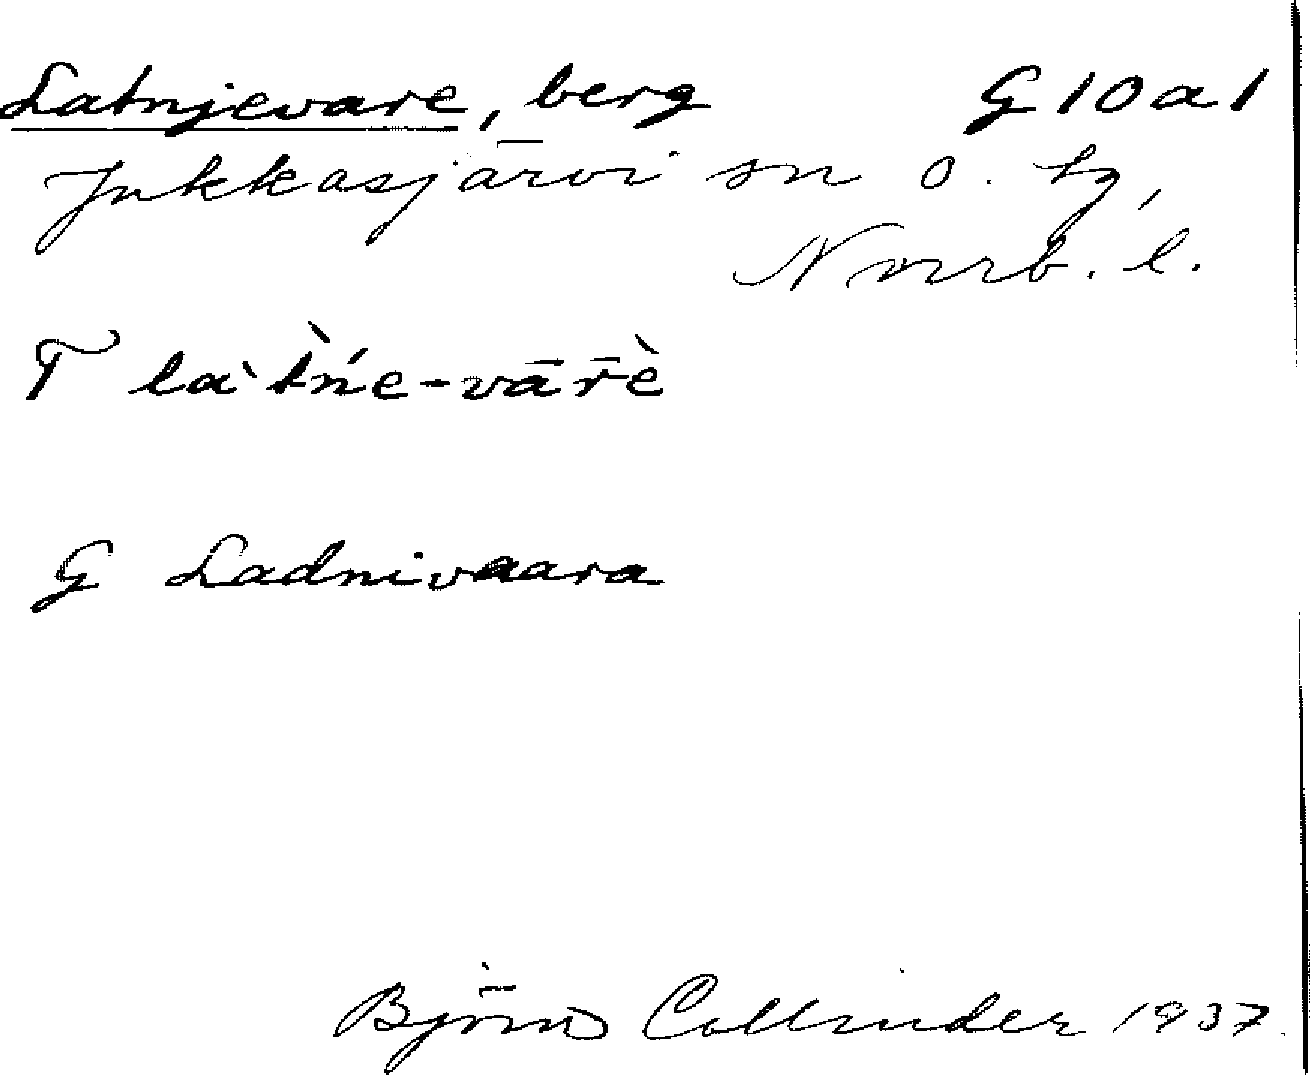 Latnjevare, berg G10a1
Jukkasjärvi sn o. tg,
Norrb. l.
T laˋt̀ńe-vār̄è
G Ladnivaara
Björn Collinder 1937